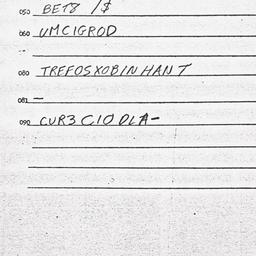 050 BET8 /$
060 UMCIGROD
080 TREFOSXOBINHANT
081 —
090 CUR3 CIODLA-